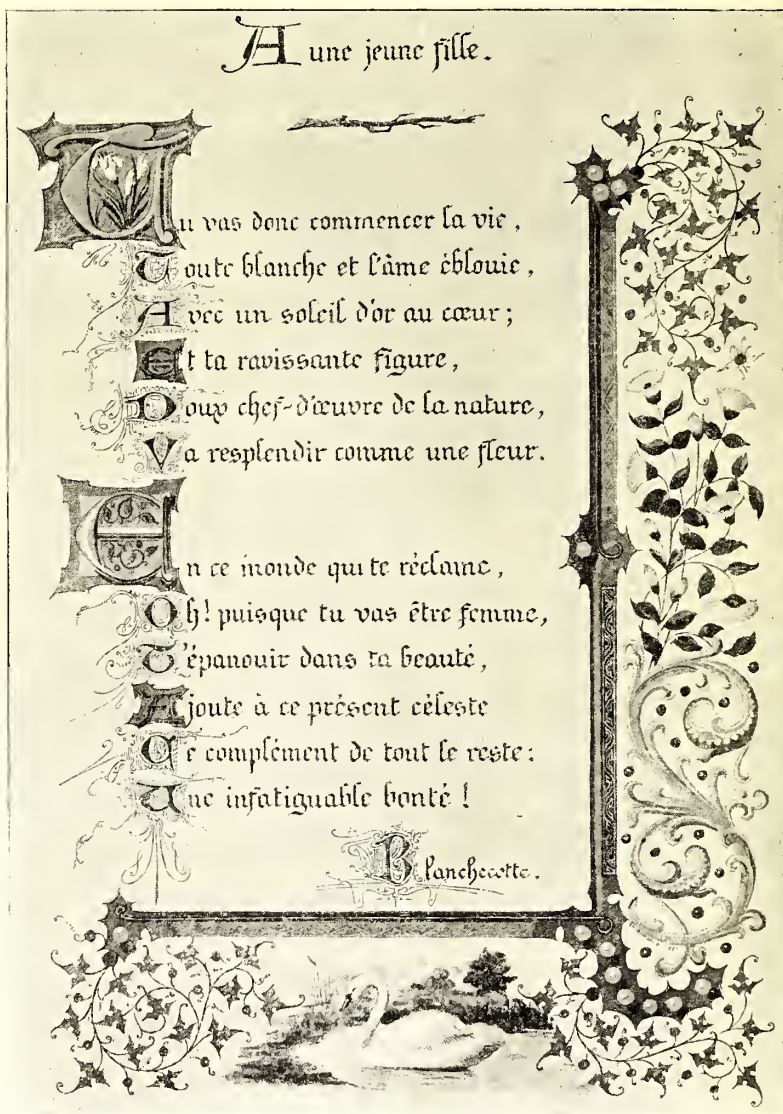 A une jeune fille.
Tu vas donc commencer la vie,
Toute blanche et l'âme éblouie,
Avec un soleil d'or au cœur;
Et ta ravissante figure,
Doux chef-d'œuvre de la nature,
Va resplendir comme une fleur.
En ce monde qui te réclame,
Oh! puisque tu vas être femme,
T'épanouir dans ta beauté,
Ajoute à ce présent céleste
Ce complément de tout le reste:
Une infatiguable bonté!
Blanchecotte.